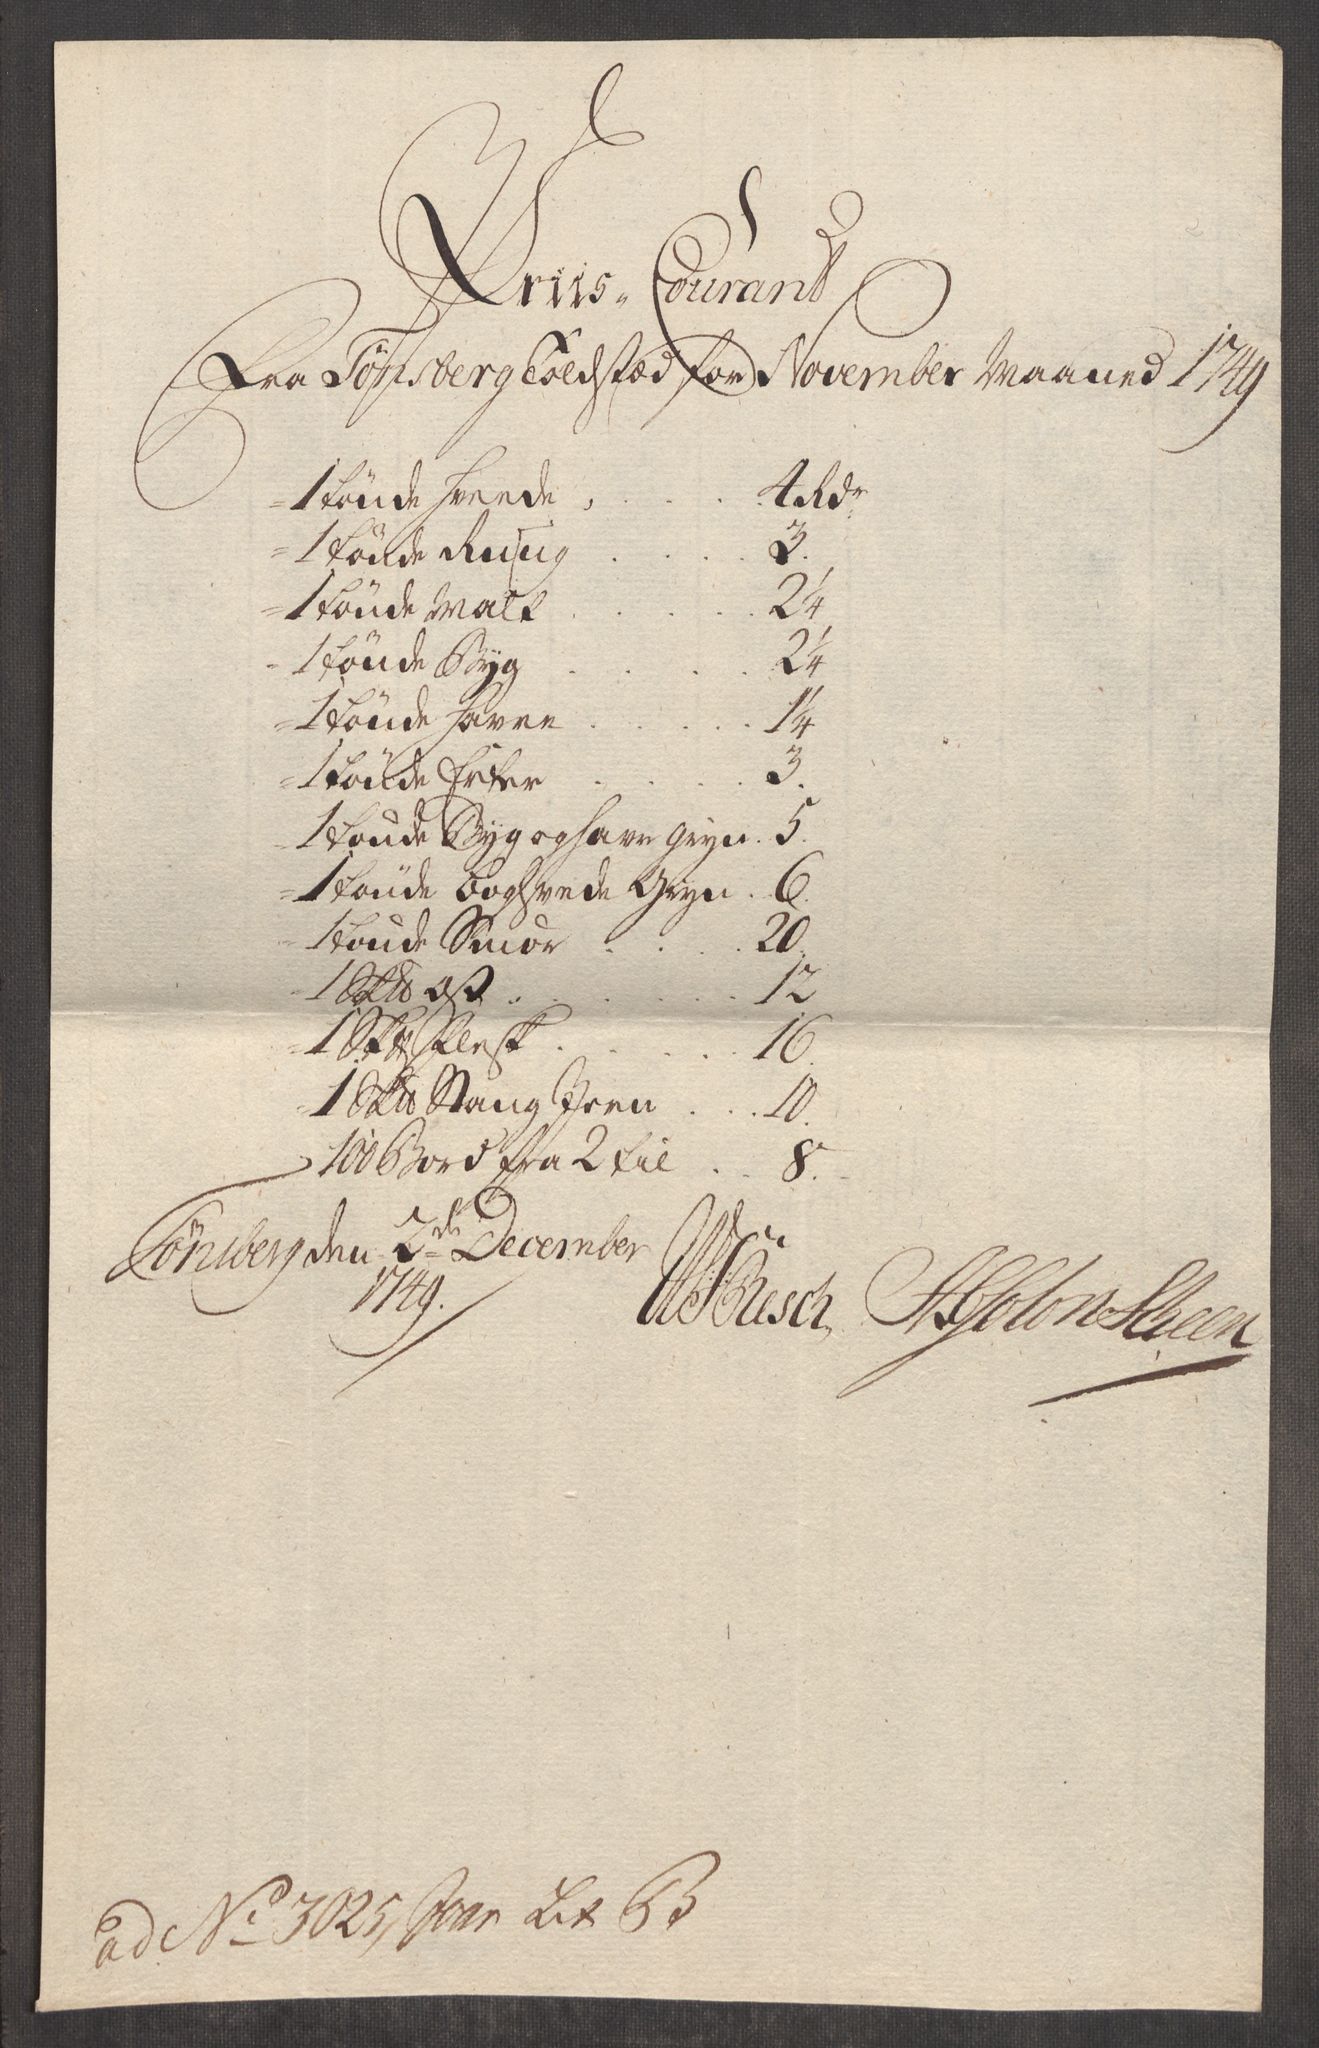 Priis-Courant
Fra Tønsberg Toldstæd for November Maaned 1749
1 tønde Hveede . . . . 4 Rdr
1 tønde Rug . . . . 3.
1 tønde Malt . . . . 2¼
1 tønde Byg . . . . 2¼
1 tønde Havre . . . . 1¼
1 tønde Erter . . . . 3.
1 tønde Byg og Havre Gryn . 5.
1 tønde Boghvede Gryn . 6.
1 tønde Smør . . . 20.
1 Sk℔ Ost . . . . . 12
1 Sk℔ Flesk . . . . . 16.
1 Sk℔ Stang Jern . . . 10.
100 Bord fra 2 til . . 8.
Tønsberg den 2de December
1749.
Büsch, Absolon Skeen
ad No 3025, Lit B